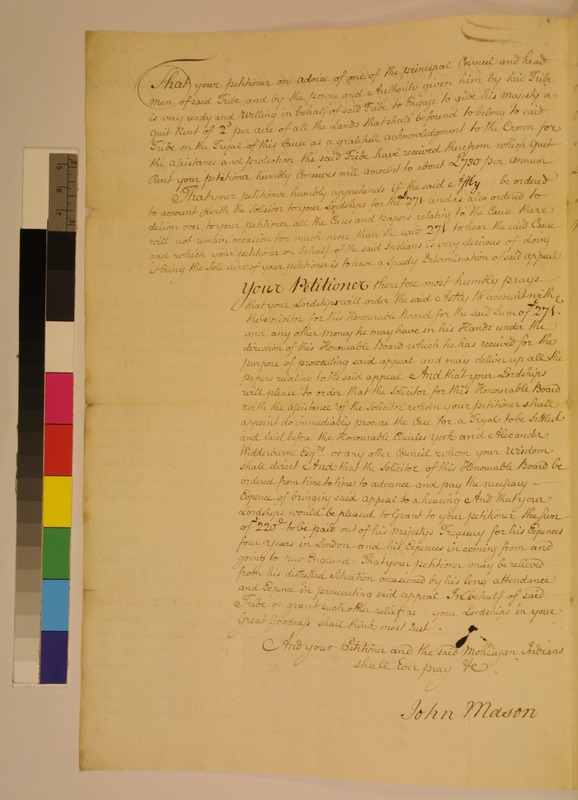 That your petitioner on advice of one of the principal Council and head
men of said Tribe and by the power and Authority given him by said Tribe
is very ready and Willing in behalf of said Tribe to Engage to give his Majesty a
quit Rent of 2d per Acre of all the Lands that shall be found to belong to said
Tribe on the Tryal of this Cause as a gratefull acknowledgment to the Crown for
the assistance and protection the said Tribe have received therefrom which Quit
Rent your petitioner humbly Conceives will amount to about £730 per Annum
That your petitioner humbly apprehends if the said Astly be ordered
to account with the Solicitor to your Lordships for the £271 and is also ordered to
deliver over to your petitioner all the Cases and papers relating to the Cause there
will not remain occasion for much more than the said 271 to hear the said Cause
and which your petitioner on behalf of the said Indians is very desirous of doing
it being the Sole view of your petitioner is to have a Speedy Determination of said appeal
Your Petitioner therefore most humbly prays
that your Lordships will order the said Astley to account with
the Solicitor for this Honourable Board for the said Sum of £271.
and any other Money he may have in his Hands under the
direction of this Honourable Board which he has received for the
purpose of prosecuting said appeal and may deliver up all the
papers relating to the said appeal And that your Lordships
will please to order that the Solicitor for this Honourable Board
with the assistance of the Solicitor whom your Petitioner shall
appoint do immediably procure the Case for a Tryal to be Settled
and laid before the Honourable Charles York and Alexander
Widderburne Esqrs. or any other Council whom your Wisdom
shall direct And that the Solicitor of this Honourable Board be
ordered from time to time to advance and pay the necessary
Expence of bringing said appeal to a hearing And that your
Lordships would be pleased to Grant to your petitioner the Sum
of £220 to be paid out of his Majestys Treasury for his Expences
four years in London and his Expences in coming from and
going to new England That your Petitioner may be relieved
from his distressed Situation occasioned by his long attendance
and Expence in prosecuting said appeal In behalf of said
Tribe or grant such other relief as your Lordships in your
Great Goodness shall think most Just.
And your Petitioner and the said Moheagan Indians
shall Ever pray &c.
John Mason